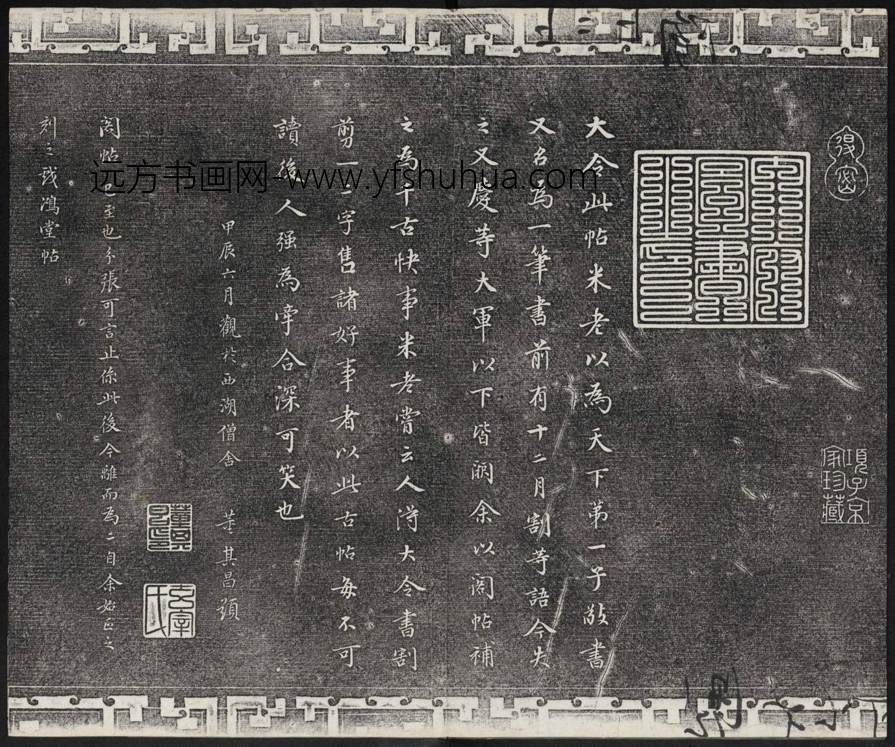 大令此帖米老以為天下第一子敬書
又名為一筆書前有十二月割等語今失
之又慶等大軍以下皆闕余以閣帖補
之為千古快事米老嘗云人得大令書割
剪一二字售諸好事者以此古帖每不可
讀後人强為牽合深可笑也
甲辰六月觀於西湖僧舍 董其昌題
閣帖 至也分張可言止係此後今離而為二自余始正之
刻之戏鴻堂帖
項子京
家珍藏
远方书画网-www.yfshuhua.com